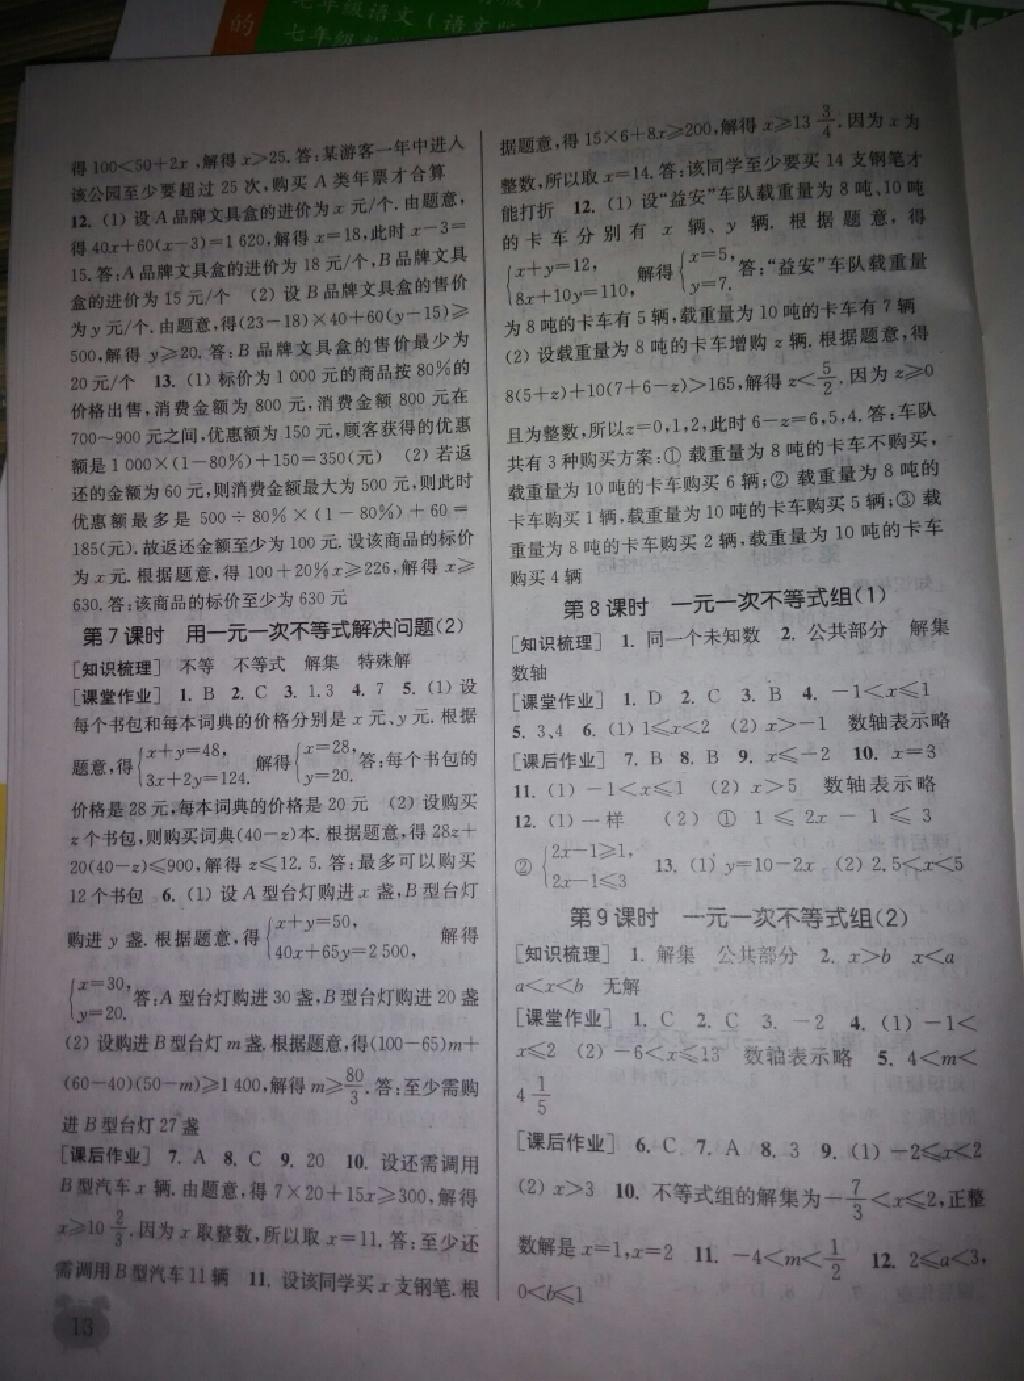 的
七年级语文(语文版)
得100<50+2x,解得x>25.答:某游客一年中进入
该公园至少要超过25次,购买A类年票才合算
12. (1) 设A品牌文具盒的进价为x元/个.由题意,
得40x+60(x-3)=1 620,解得x=18,此时x-3=
15.答:A品牌文具盒的进价为18元/个,B品牌文具
盒的进价为15元/个 (2) 设B品牌文具盒的售价
为y元/个.由题意,得(23-18)×40+60(y-15)≥
500,解得y≥20.答:B品牌文具盒的售价最少为
20元/个 13. (1) 标价为1 000元的商品按80%的
价格出售,消费金额为800元,消费金额800元在
700~900元之间,优惠额为150元,顾客获得的优惠
额是1 000×(1-80%)+150=350(元) (2) 若返
还的金额为60元,则消费金额最大为500元,则此时
优惠额最多是500÷80%×(1-80%)+60=
185(元).故返还金额至少为100元.设该商品的标价
为x元.根据题意,得100+20%x≥226,解得x≥
630.答:该商品的标价至少为630元
第7课时 用一元一次不等式解决问题(2)
[知识梳理] 不等 不等式 解集 特殊解
[课堂作业] 1. B 2. C 3. 1.3 4. 7 5. (1) 设
每个书包和每本词典的价格分别是x元、y元.根据
题意,得{x+y=48, 3x+2y=124. 解得{x=28, y=20. 答:每个书包的
价格是28元,每本词典的价格是20元 (2) 设购买
z个书包,则购买词典(40-z)本.根据题意,得28z+
20(40-z)≤900,解得z≤12.5.答:最多可以购买
12个书包 6. (1) 设A型台灯购进x盏,B型台灯
购进y盏.根据题意,得{x+y=50, 40x+65y=2 500, 解得
{x=30, y=20. 答:A型台灯购进30盏,B型台灯购进20盏
(2) 设购进B型台灯m盏.根据题意,得(100-65)m+
(60-40)(50-m)≥1 400,解得m≥80/3.答:至少需购
进B型台灯27盏
[课后作业] 7. A 8. C 9. 20 10. 设还需调用
B型汽车x辆.由题意,得7×20+15x≥300,解得
x≥10 2/3.因为x取整数,所以取x=11.答:至少还
需调用B型汽车11辆 11. 设该同学买x支钢笔.根
13
据题意,得15×6+8x≥200,解得x≥13 3/4.因为x为
整数,所以取x=14.答:该同学至少要买14支钢笔才
能打折 12. (1) 设“益安”车队载重量为8吨、10吨
的卡车分别有x辆、y辆.根据题意,得
{x+y=12, 8x+10y=110, 解得{x=5, y=7. 答:“益安”车队载重量
为8吨的卡车有5辆,载重量为10吨的卡车有7辆
(2) 设载重量为8吨的卡车增购z辆.根据题意,得
8(5+z)+10(7+6-z)>165,解得z<5/2.因为z≥0
且为整数,所以z=0,1,2,此时6-z=6,5,4.答:车队
共有3种购买方案:① 载重量为8吨的卡车不购买,
载重量为10吨的卡车购买6辆;② 载重量为8吨的
卡车购买1辆,载重量为10吨的卡车购买5辆;③ 载
重量为8吨的卡车购买2辆,载重量为10吨的卡车
购买4辆
第8课时 一元一次不等式组(1)
[知识梳理] 1. 同一个未知数 2. 公共部分 解集
数轴
[课堂作业] 1. D 2. C 3. B 4. -1<x≤1
5. 3、4 6. (1) 1≤x<2 (2) x>-1 数轴表示略
[课后作业] 7. B 8. B 9. x≤-2 10. x=3
11. (1) -1<x≤1 (2) x>5 数轴表示略
12. (1) 一样 (2) ① 1≤2x-1≤3
② {2x-1≥1, 2x-1≤3 13. (1) y=10-2x (2) 2.5<x<5
第9课时 一元一次不等式组(2)
[知识梳理] 1. 解集 公共部分 2. x>b x<a
a<x<b 无解
[课堂作业] 1. C 2. C 3. -2 4. (1) -1<
x≤2 (2) -6<x≤13 数轴表示略 5. 4<m<
4 1/5
[课后作业] 6. C 7. A 8. 3 9. (1) -2≤x<2
(2) x>3 10. 不等式组的解集为-7/3<x≤2,正整
数解是x=1,x=2 11. -4<m<1/2 12. 2≤a<3,
0<b≤1